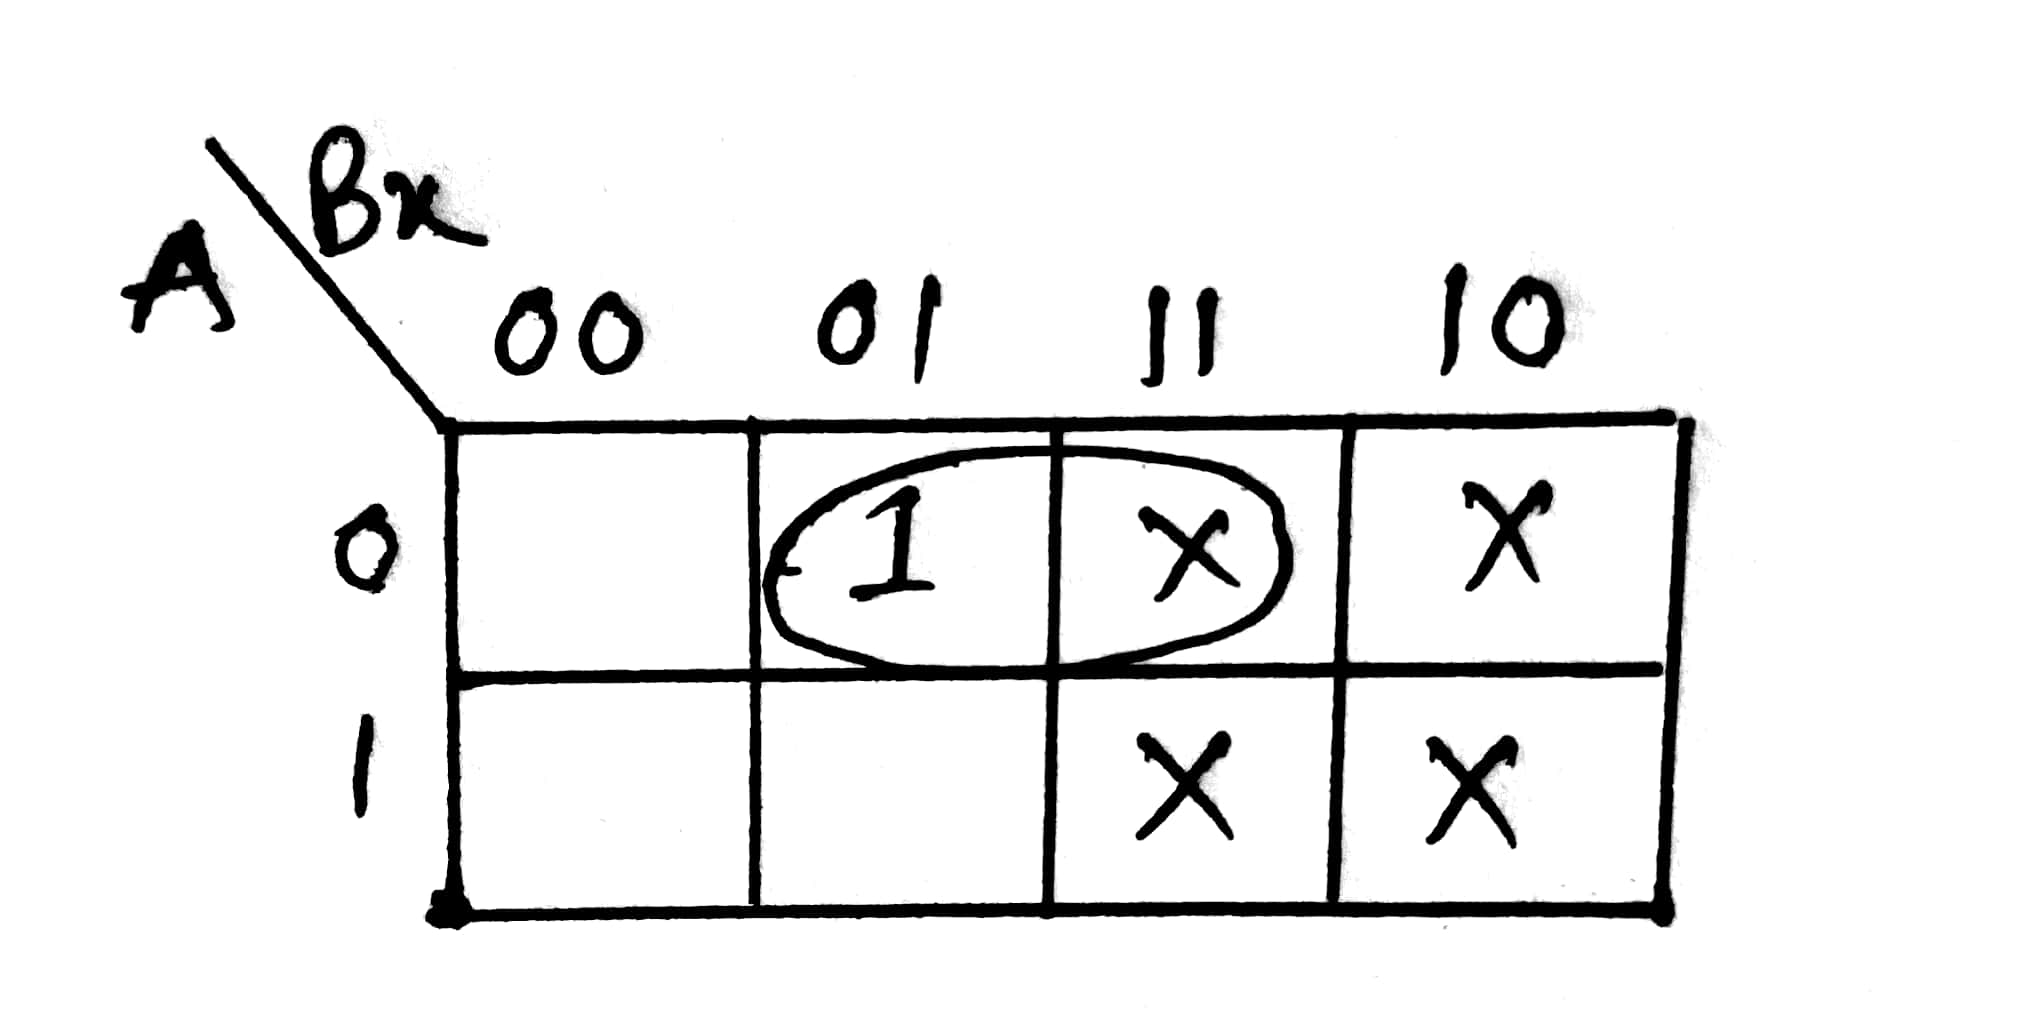 Bx
A
00 01 11 10
0 1 X X
1 X X